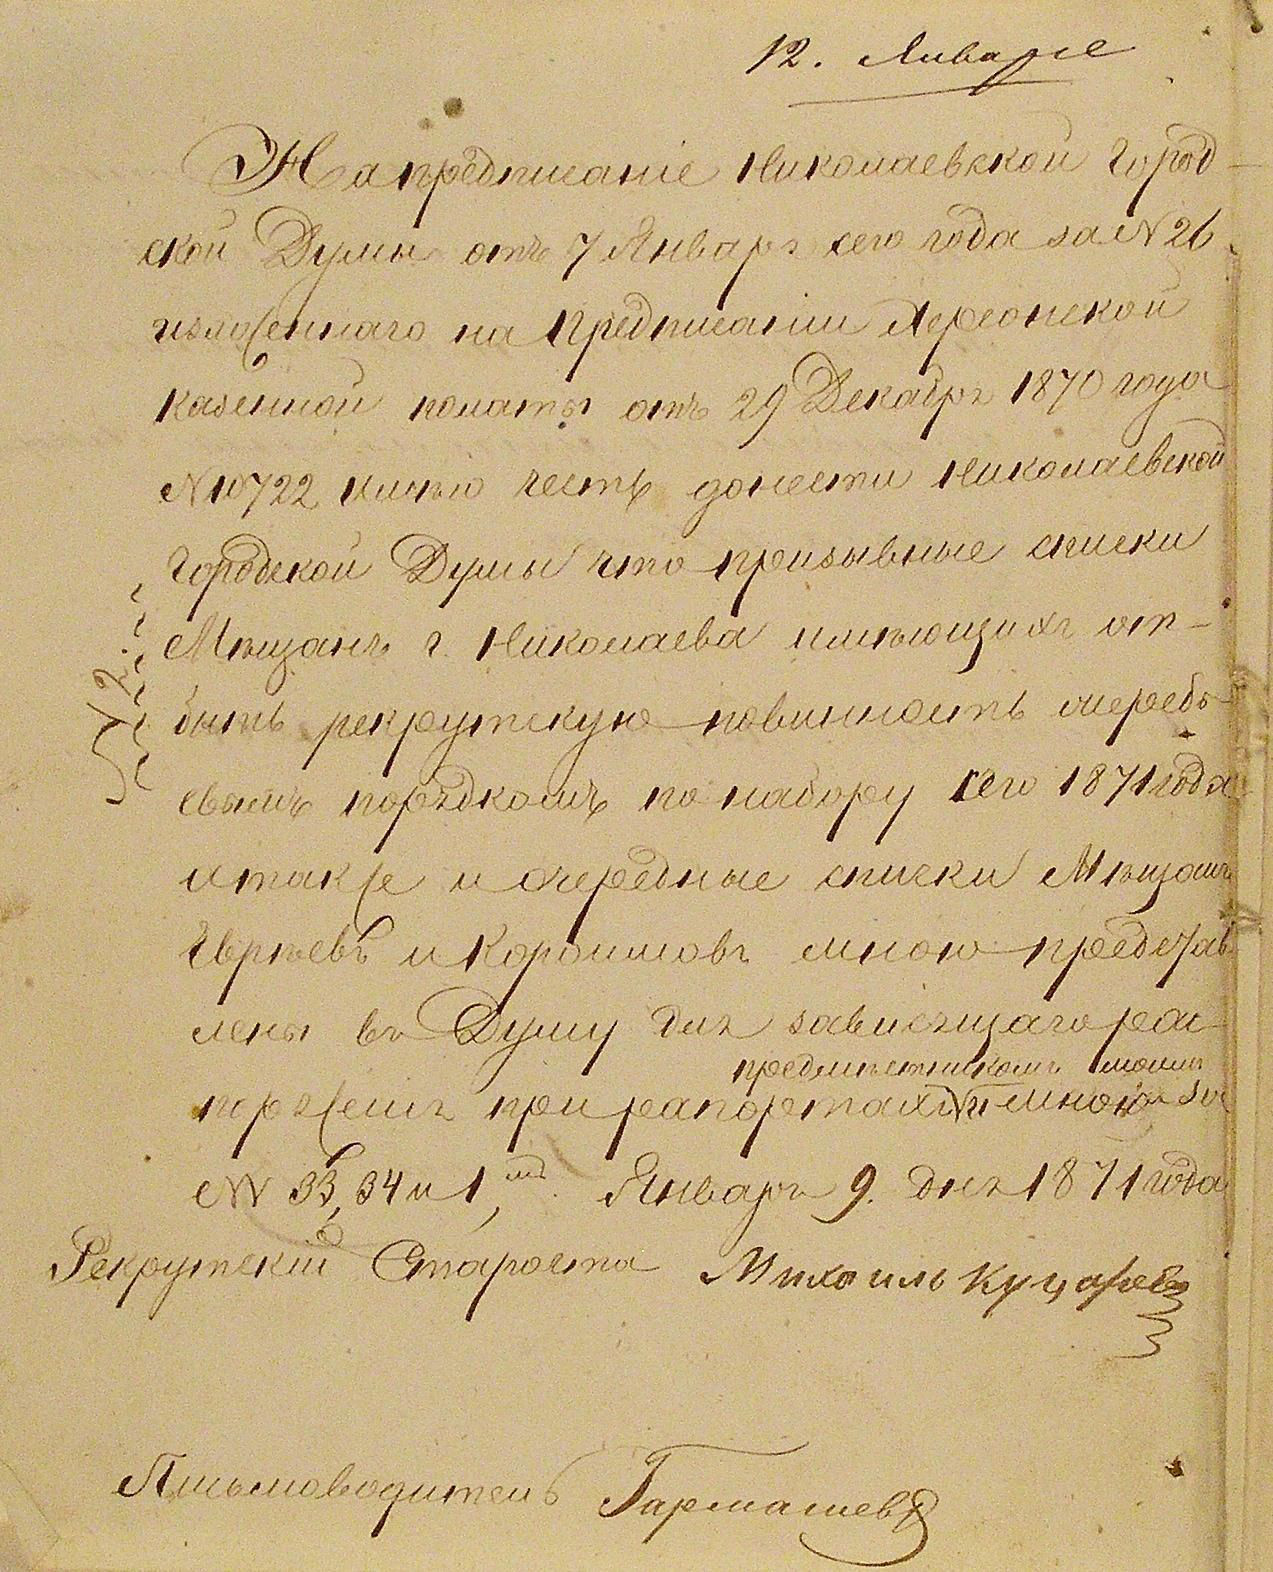 12. Января
На предписаніе Николаевской Город-
ской Думы отъ 7 Января сего года за № 26
изложеннаго на Предписаніи Херсонской
казенной полаты отъ 29 Декабря 1870 года
№ 10722 имѣю честь донести Николаевской
Городской Думы что призывные списки
Мѣщанъ г. Николаева имѣющихъ от-
быть рекрутскую повинность очередо-
вымъ порядкомъ по набору сего 1871 года
а также и очередные списки Мѣщанъ
Евреевъ и Кораимовъ мною представ
лены въ Думу для зависящаго рас-
предмѣстникомъ моимъ
поряженія при рапортахъ и мною за
№№ 33, 34 и 1, Января 9. дня 1871 года
Рекрутскій Староста Михаилъ
Письмоводитель Гармашевъ